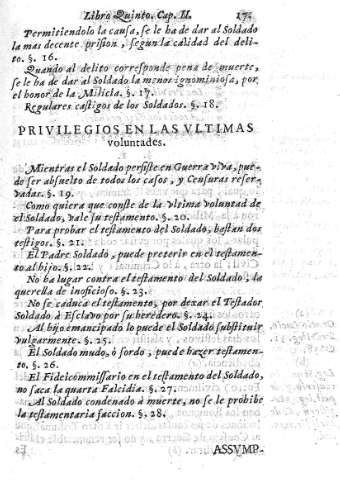 Libro Quinto. Cap. II. 17
Permitiendolo la causa, se le ha de dar al Soldado
la mas decente prision, segun la calidad del deli-
to. §. 16.
Quando al delito corresponde pena de muerte,
se le ha de dar al Soldado la menos ignominiosa, por
el honor de la Milicia. §. 17.
Regulares castigos de los Soldados. §. 18.
PRIVILEGIOS EN LAS VLTIMAS
voluntades.
Mientras el Soldado persiste en Guerra viva, pue-
de ser absuelto de todos los casos, y Censuras reser-
vadas. §. 19.
Como quiera que conste de la vltima voluntad de
el Soldado, vale su testamento. §. 20.
Para probar el testamento del Soldado, bastan dos
testigos. §. 21.
El Padre Soldado, puede preterir en el testamen-
to al hijo. §. 22.
No ha lugar contra el testamento del Soldado, la
querella de inoficioso. §. 23.
No se caduca el testamento, por dexar el Testador
Soldado à Esclavo por su heredero. §. 24.
Al hijo emancipado lo puede el Soldado substituir
vulgarmente. §. 25.
El Soldado mudo, ò sordo, puede hazer testamen-
to. §. 26.
El Fideicommissario en el testamento del Soldado,
no saca la quarta Falcidia. §. 27.
Al Soldado condenado à muerte, no se le prohibe
la testamentaria faccion. §. 28.
ASSVMP-